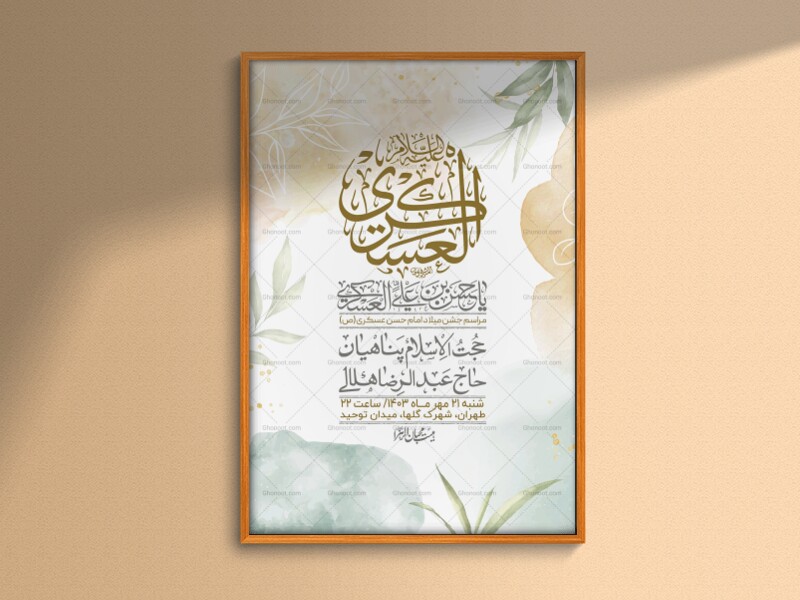 العسکری
علیه السلام
یا حسن بن علی العسکری
مراسم جشن میلاد امام حسن عسکری(ص)
حجت الاسلام پناهیان
حاج عبدالرضا هلالی
شنبه ۲۱ مهر ماه ۱۴۰۳/ ساعت ۲۲
طهران، شهرک گلها، میدان توحید
Ghonoot.com